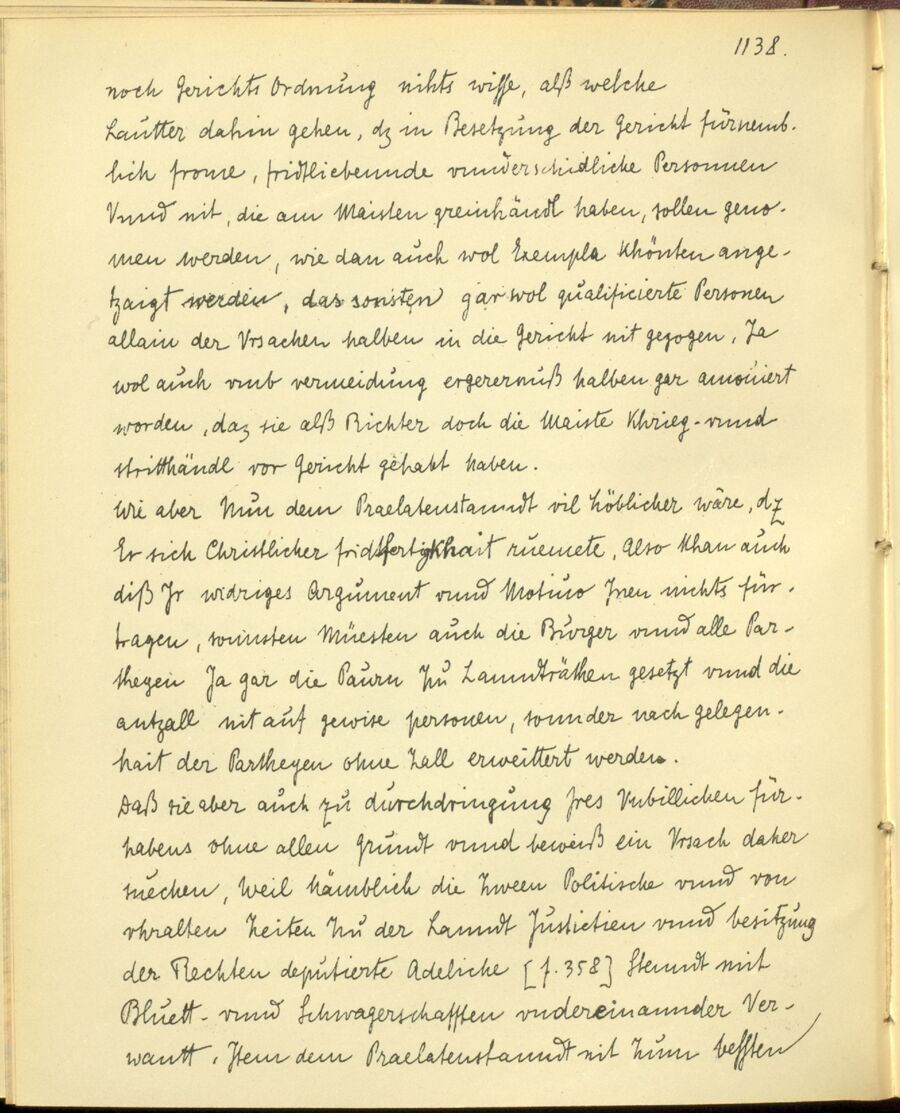 1138.
noch Gerichts Ordnung nihts wisse, alß welche
Lautter dahin gehen, dz in Besetzung der Gericht fürnemb-
lich frome, fridtliebennde vnnderschidliche Personnen
Vnnd nit, die am Maisten greinhändl haben, sollen geno-
men werden, wie dan auch wol Exempla khönten ange-
tzaigt werden, das sonsten gar wol qualificierte Personen
allain der Vrsachen halben in die Gericht nit gezogen, Ja
wol auch vmb vermeidung ergerernuß halben gar amouiert
worden, daz sie alß Richter doch die Maiste Khrieg- vnnd
stritthändl vor Gericht gehabt haben.
Wie aber Nun dem Praelatenstanndt vil löblicher wäre, dz
Er sich Christlicher fridtfertigkhait ruemete, Also khan auch
diß Jr widriges Argument vnnd Motiuo Jnen nichts für-
tragen, sonnsten Müesten auch die Burger vnnd alle Par-
theyen Ja gar die Paurn Zu Lanndträthen gesetzt vnnd die
antzall nit auf gewise personen, sonnder nach gelegen-
hait der Partheyen ohne Zall erweittert werden.
Daß sie aber auch zu durchdringung Jres Vnbillichen für-
habens ohne allen Grundt vnnd beweiß ein Vrsach daher
suechen, Weil Nämblich die Zween Politische vnnd von
vhralten Zeiten Zu der Lanndt Justitien vnnd besitzung
der Rechten deputierte Adeliche [f. 358] Stenndt mit
Bluett- vnnd Schwagerschafften vndereinannder Ver-
wantt, Jtem dem Praelatenstanndt nit Zum besten